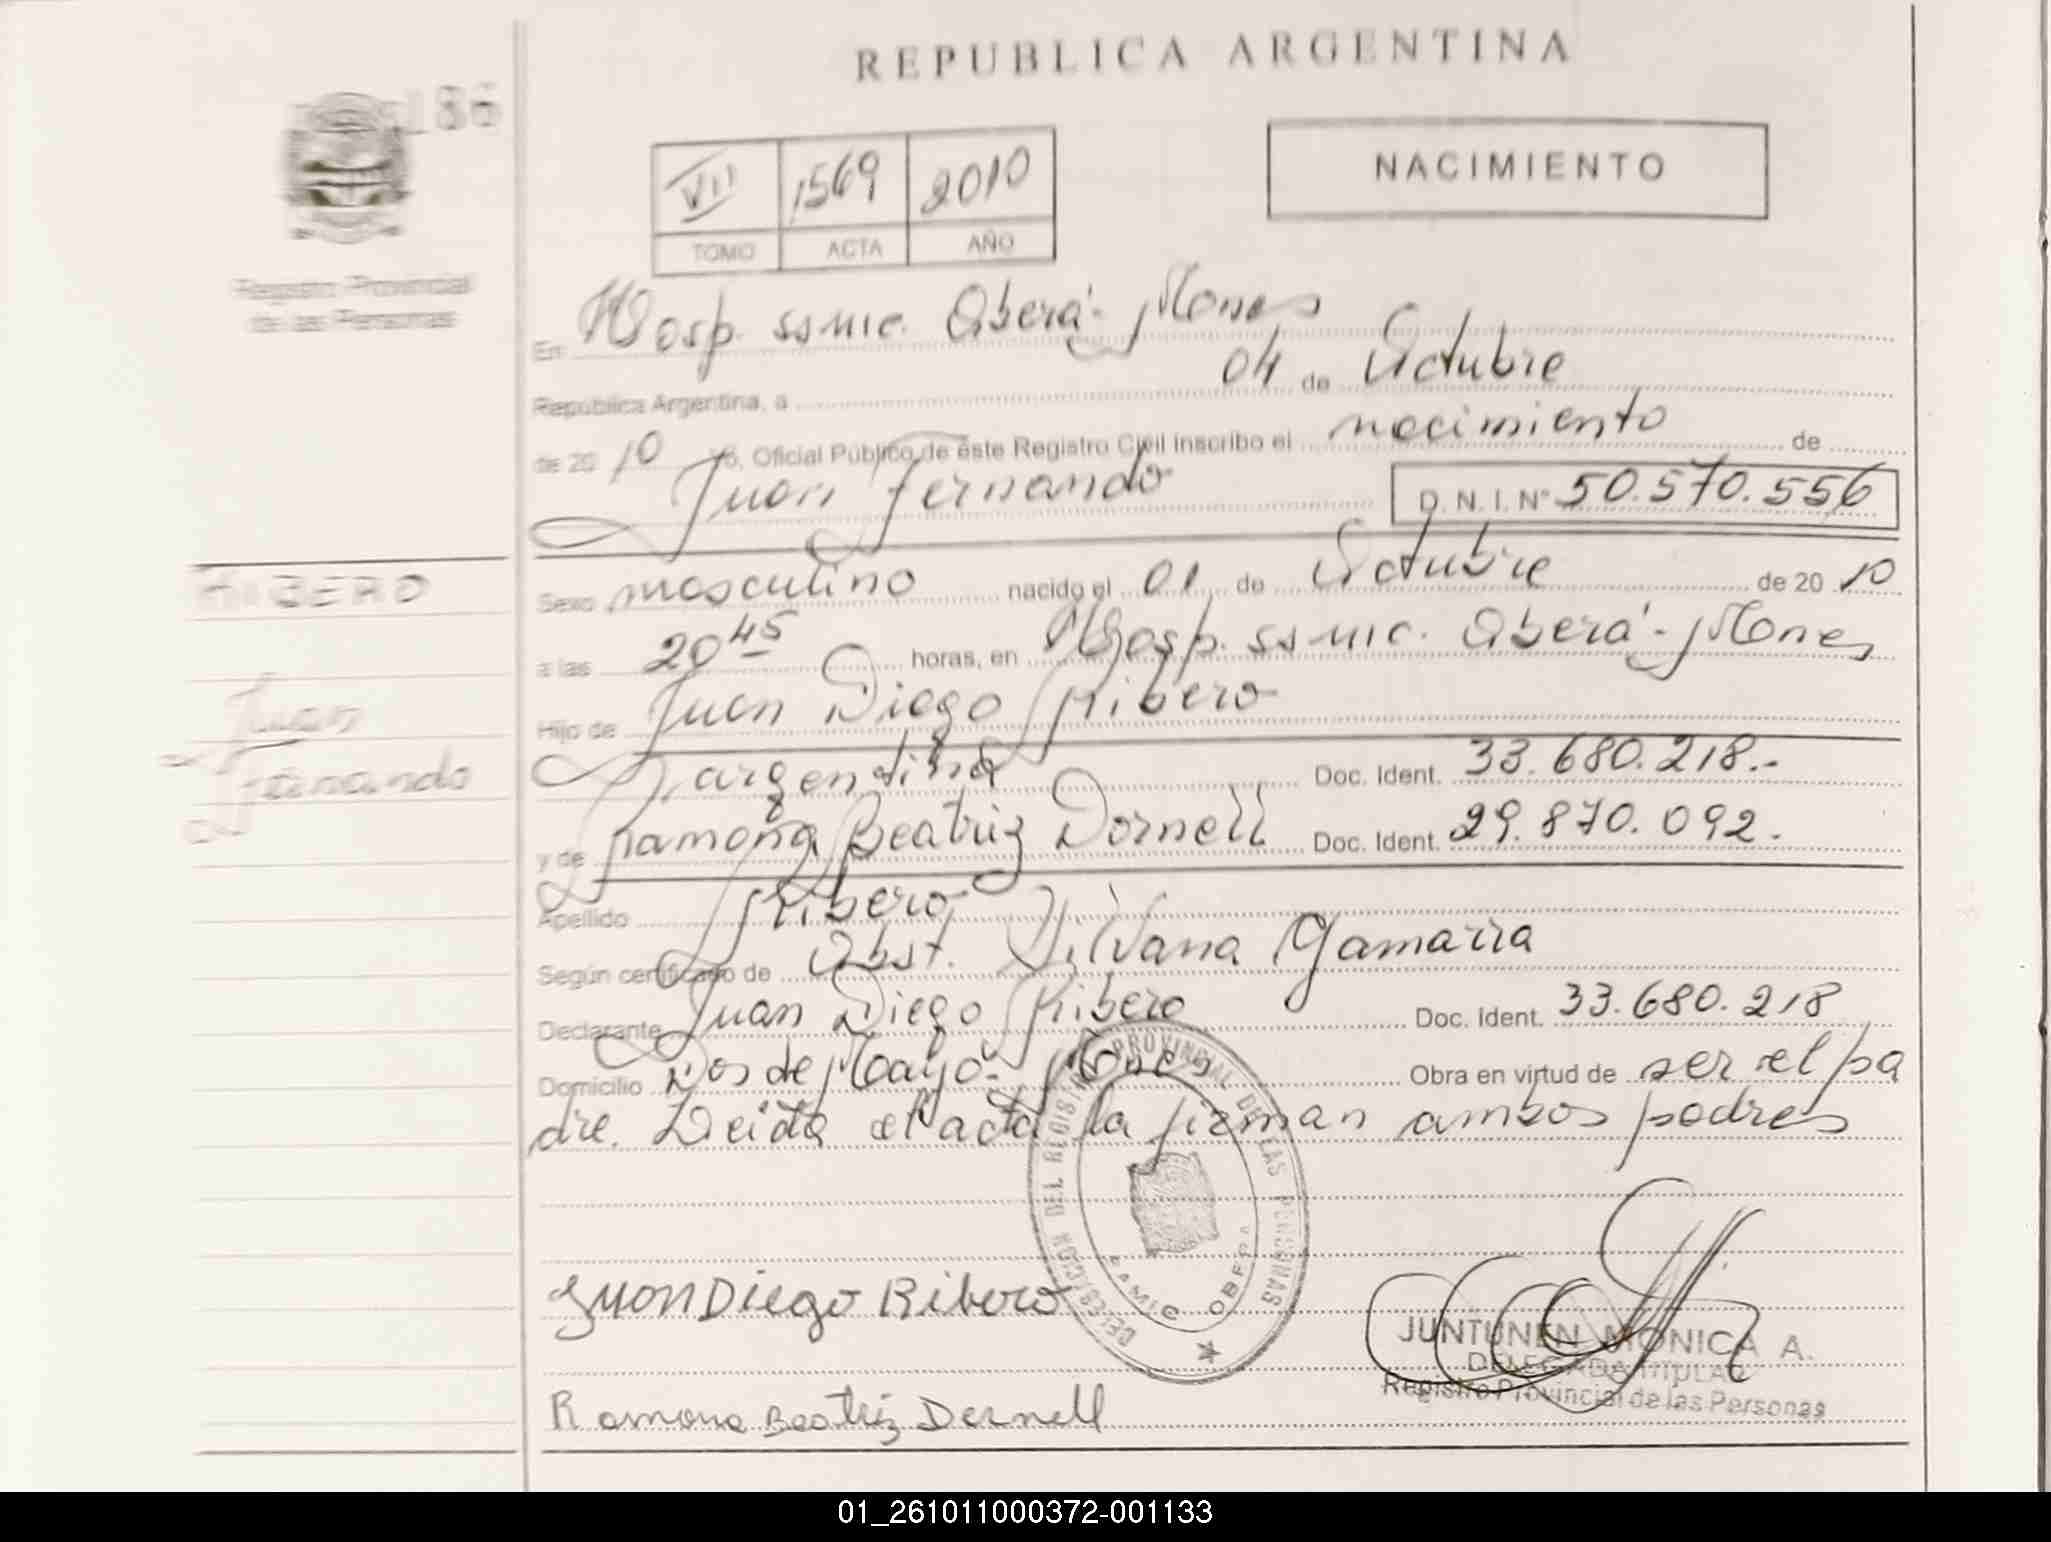 REPUBLICA ARGENTINA
186
NACIMIENTO
VII 1569 2010
TOMO ACTA AÑO
Registro Provincial
de las Personas
En Hosp. ssmic. Oberá - Mones
República Argentina, a 04 de Octubre
de 2010 Yo, Oficial Público de éste Registro Civil inscribo el nacimiento de
Juan Fernando D. N. I. Nº 50.570.556
RIBERO
Juan
Fernando
Sexo masculino nacido el 01 de Octubre de 2010
a las 20 45 horas, en Hosp. ssmic. Oberá - Mones
Hijo de Juan Diego Ribero
argentina Doc. Ident. 33.680.218.-
y de Ramona Beatriz Dornell Doc. Ident. 29.870.092.
Apellido Ribero
Según certificado de Obst. Silvana Gamarra
Declarante Juan Diego Ribero Doc. Ident. 33.680.218
Domicilio Dos de Mayo - Mones Obra en virtud de ser el pa
dre. Leida el acta la firman ambos padres
DELEGACION DEL REGISTRO PROVINCIAL DE LAS PERSONAS
SAMIC OBERA
Juan Diego Ribero
JUNTUNEN MONICA A.
DELEGADA TITULAR
Registro Provincial de las Personas
Ramona Beatriz Dernell
01_261011000372-001133